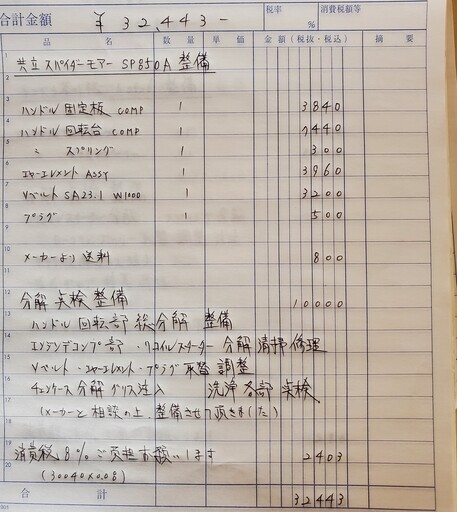 合計金額 ¥32,443-
税率 % 消費税額等
品名 数量 単価 金額(税抜・税込) 摘要
1 共立 スパイダーモアー SP850A 整備
2
3 ハンドル 固定板 COMP 1 3840
4 ハンドル 回転台 COMP 1 7440
5 〃 スプリング 1 300
6 エヤーエレメント ASSY 1 3960
7 Vベルト SA23.1 W1000 1 3200
8 プラグ 1 500
9
10 メーカーより 送料 800
11
12 分解 点検 整備 10000
13 ハンドル 回転部 総分解 整備
14 エンジンデコンプ部・リコイルスターター 分解 清掃 修理
15 Vベルト・エヤーエレメント・プラグ 取替 調整
16 チェンケース 分解 グリス注入 洗浄 各部 点検
17 (メーカーと 相談の上 整備させて頂きました)
18
19 消費税 8% ご負担お願いします 2403
20 (30040×0.08)
合計 32443
301